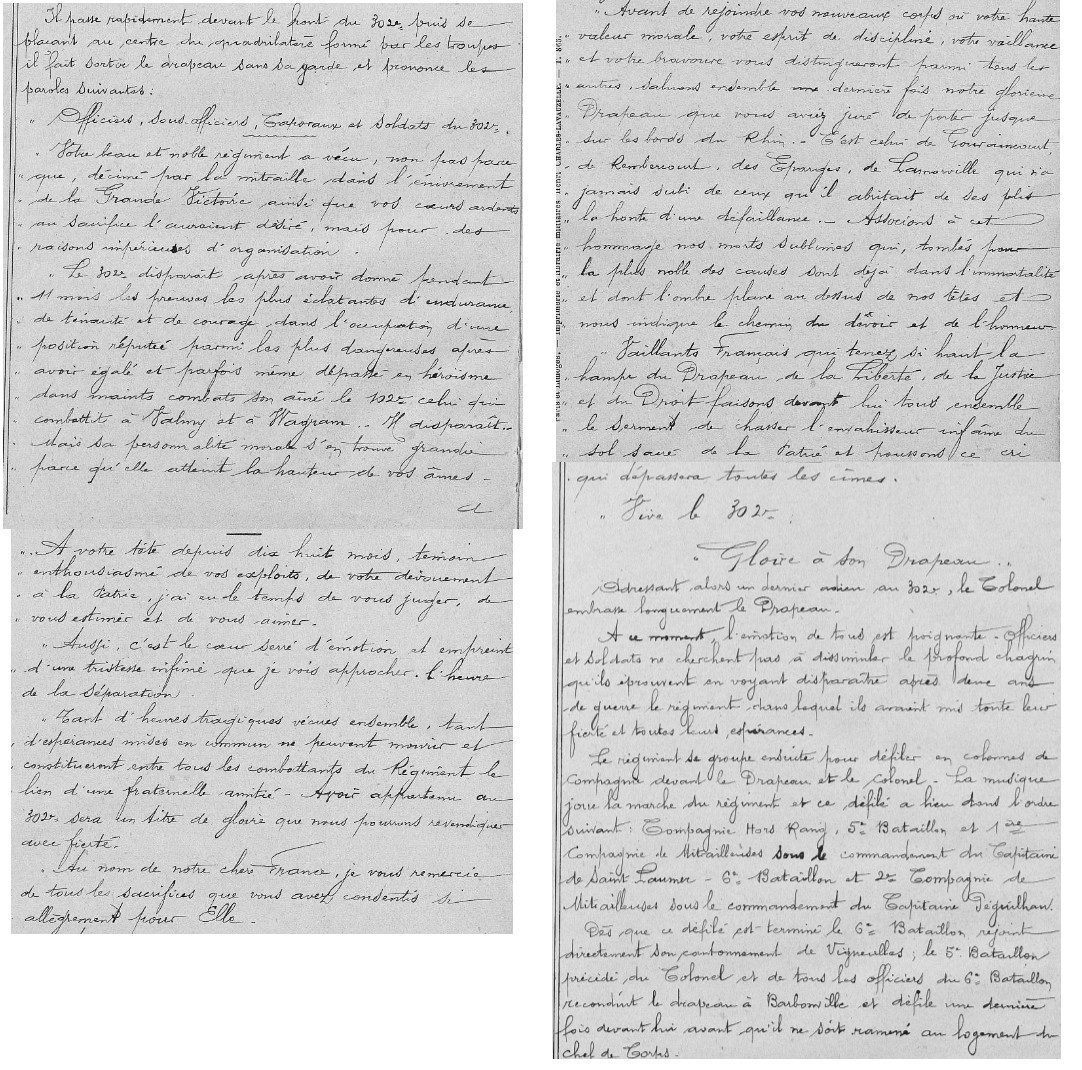 Il passe rapidement devant le front du 302e, puis se
plaçant au centre du quadrilatère formé par les troupes
il fait sortir le drapeau sans sa garde et prononce les
paroles suivantes :
" Officiers, sous-officiers, Caporaux et Soldats du 302e.
" Votre beau et noble régiment a vécu, non pas parce
" que, décimé par la mitraille dans l'énivrement
" de la Grande Victoire ainsi que vos cœurs ardents
" au sacrifice l'auraient désiré, mais pour des
" raisons impérieuses d'organisation.
" Le 302e disparaît après avoir donné pendant
" 11 mois les preuves les plus éclatantes d'endurance
" de ténacité et de courage, dans l'occupation d'une
" position réputée parmi les plus dangereuses après
" avoir égalé et parfois même dépassé en héroïsme
" dans maints combats son aîné le 102e celui qui
" combattit à Valmy et à Wagram .. Il disparaît..
" Mais sa personnalité morale s'en trouve grandie
" parce qu'elle atteint la hauteur de vos âmes -
"..A votre tête depuis dix huit mois, témoin
" enthousiasmé de vos exploits, de votre dévouement
" à la Patrie, j'ai eu le temps de vous juger, de
" vous estimer et de vous aimer.
" Aussi, c'est le cœur serré d'émotion et empreint
" d'une tristesse infinie que je vois approcher l'heure
de la Séparation.
" Tant d'heures tragiques vécues ensemble, tant
" d'espérances mises en commun ne peuvent mourir et
" constitueront entre tous les combattants du Régiment le
lien d'une fraternelle amitié - Avoir appartenu au
302e sera un titre de gloire que nous pourrons revendiquer
avec fierté.
" Au nom de notre chère France, je vous remercie
de tous les sacrifices que vous avez consentis si
allègrement pour Elle -
" Avant de rejoindre vos nouveaux corps où votre haute
" valeur morale, votre esprit de discipline, votre vaillance
" et votre bravoure vous distingueront parmi tous les
" autres, saluons ensemble une dernière fois notre glorieux
Drapeau que vous aviez juré de porter jusque
" sur les bords du Rhin. - C'est celui de Gouraincourt
" de Rembercourt, des Eparges, de Lamorville qui n'a
" jamais subi de ceux qu'il abritait de ses plis
" la honte d'une défaillance. - Associons à cet
" hommage nos morts sublimes qui, tombés pour
" la plus noble des causes sont déjà dans l'immortalité
" et dont l'ombre plane au dessus de nos têtes et
" nous indique le chemin du devoir et de l'honneur
" Vaillants Français qui tenez si haut la
" hampe du Drapeau de la Liberté, de la Justice
" et du Droit faisons devant lui tous ensemble
" le Serment de chasser l'envahisseur infâme du
" sol sacré de la Patrie et poussons ce cri
" qui dépassera toutes les cîmes.
" Vive le 302e
" Gloire à son Drapeau ..
Adressant alors un dernier adieu au 302e, le Colonel
embrasse longuement le Drapeau.
A ce moment, l'émotion de tous est poignante - Officiers
et Soldats ne cherchent pas à dissimuler le profond chagrin
qu'ils éprouvent en voyant disparaître après deux ans
de guerre le régiment dans lequel ils avaient mis toute leur
fierté et toutes leurs espérances.
Le régiment se groupe ensuite pour défiler en colonnes de
Compagnie devant le Drapeau et le colonel - La musique
joue la marche du régiment et ce défilé a lieu dans l'ordre
suivant : Compagnie Hors Rang, 5e Bataillon et 1ère
Compagnie de Mitrailleuses sous le commandement du Capitaine
de Saint Laumer - 6e Bataillon et 2e Compagnie de
Mitrailleuses sous le commandement du Capitaine Péguilhan.
Dès que ce défilé est terminé le 6e Bataillon rejoint
directement son cantonnement de Vigneulles ; le 5e Bataillon
précédé du Colonel et de tous les officiers du 6e Bataillon
reconduit le drapeau à Barbonville et défile une dernière
fois devant lui avant qu'il ne soit ramené au logement du
chef de Corps.